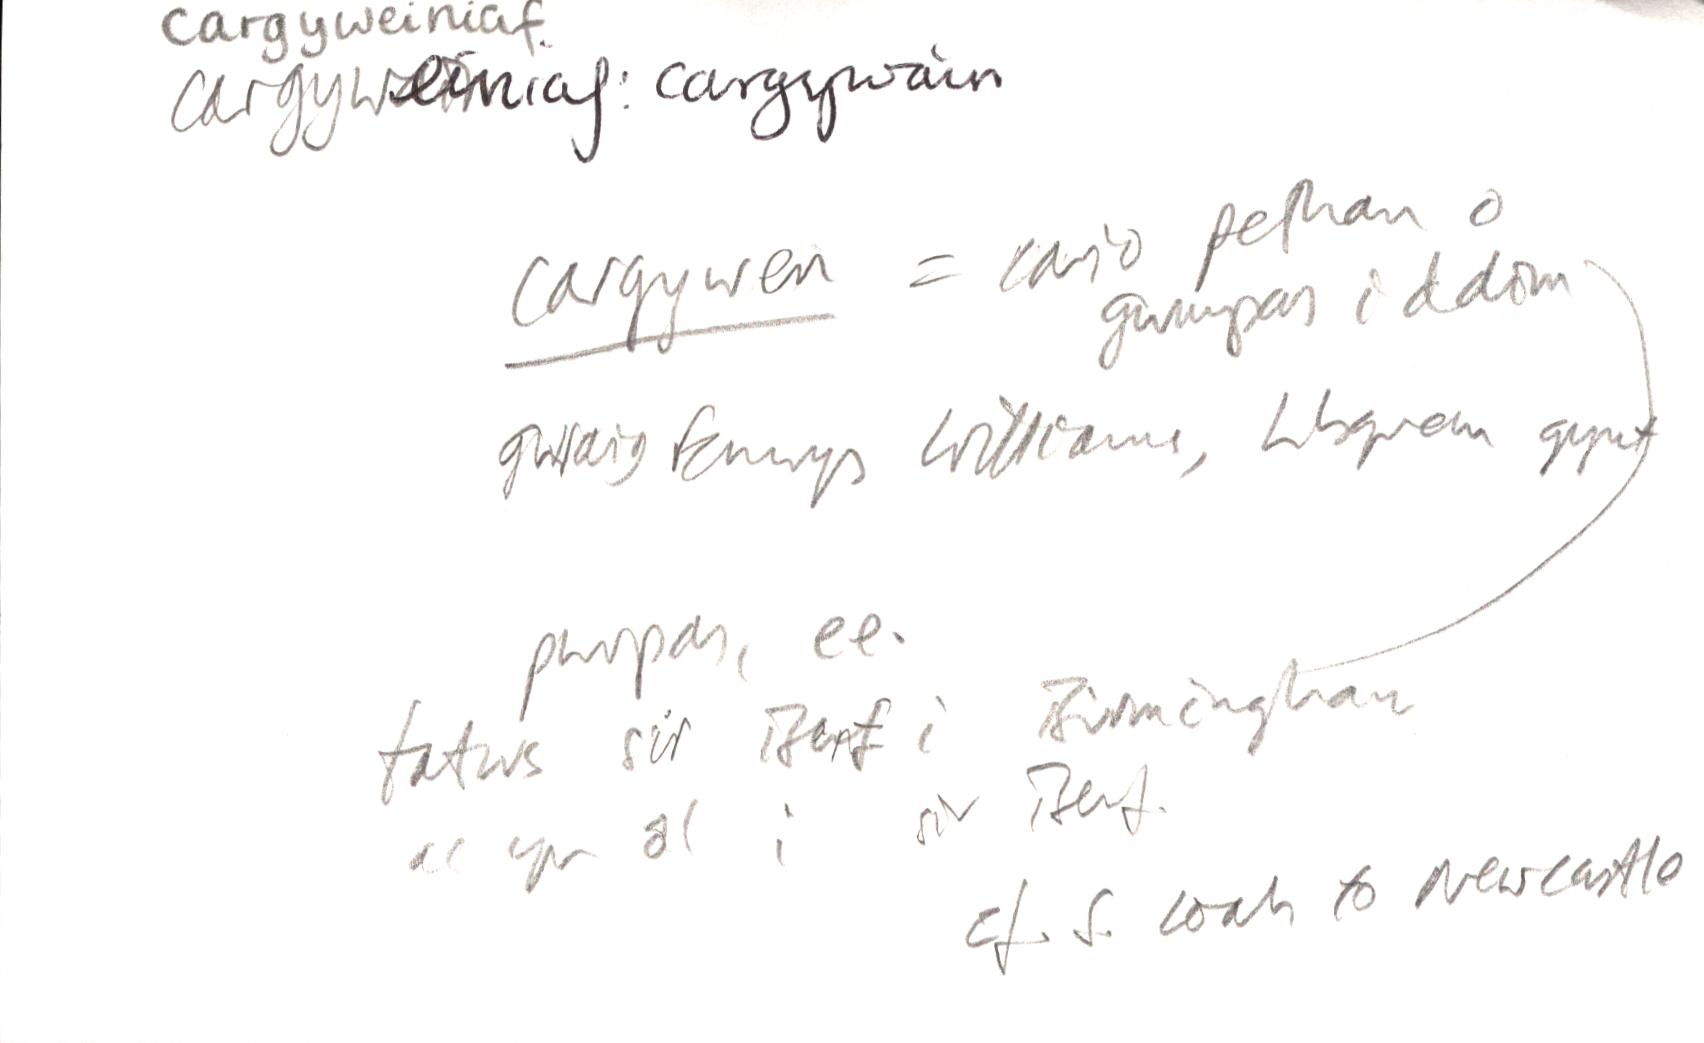 cargyweiniaf.
cargyweiniaf: cargywain
cargywen = cario pethau o
gwmpas i ddim
gwraig Emrys Williams, Llsgrau gynt
pwrpas, ee.
tatws sir Benf i Birmingham
ac yn ôl i sir Benf.
cf. S. coals to Newcastle